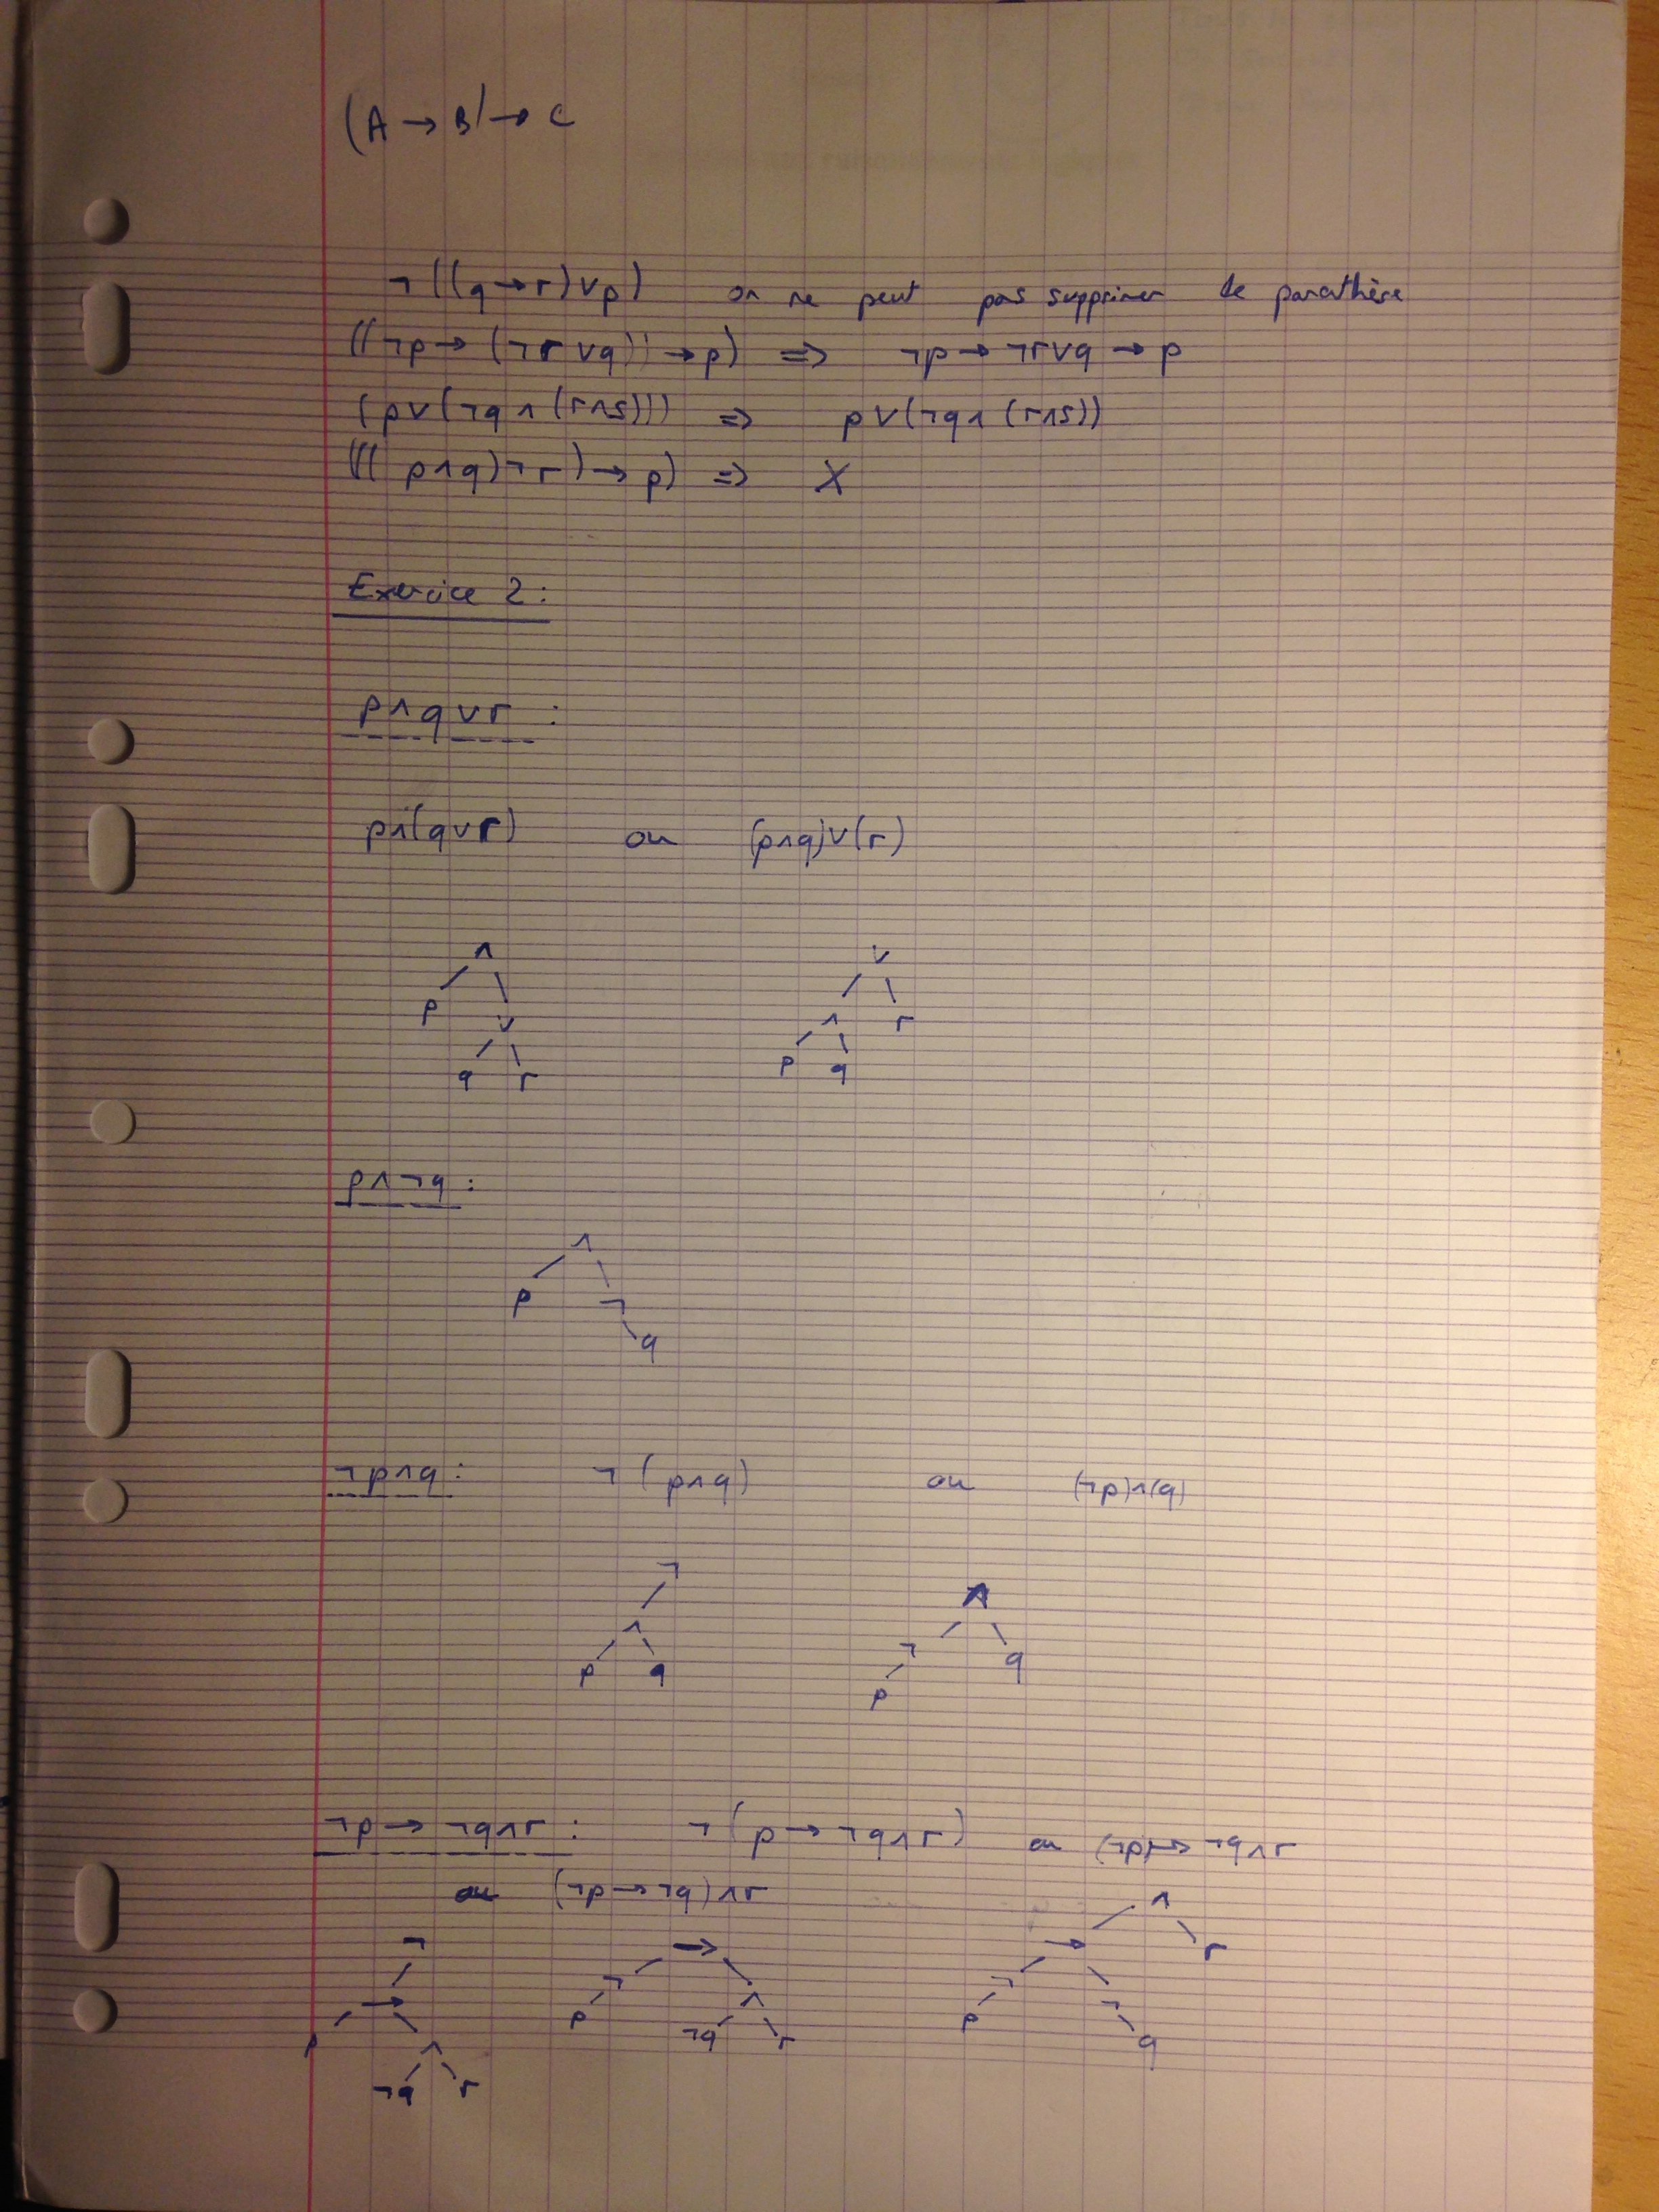 (A → B) → C
¬((q→r)∨p) on ne peut pas supprimer de paranthèse
((¬p→(¬r∨q))→p) => ¬p→¬r∨q→p
(p∨(¬q∧(r∧s))) => p∨(¬q∧(r∧s))
(((p∧q)¬r)→p) => X
Exercice 2:
p∧q∨r :
p∧(q∨r) ou (p∧q)∨(r)
∧ ∨
p ∨ ∧ r
q r p q
p∧¬q :
∧
p ¬
q
¬p∧q : ¬(p∧q) ou (¬p)∧(q)
¬ ∧
∧ ¬ q
p q p
¬p→¬q∧r : ¬(p→¬q∧r) ou (¬p)→¬q∧r
ou (¬p→¬q)∧r
¬ → ∧
→ ¬ ∧ → r
p ∧ p ¬q r ¬ ¬
¬q r p q